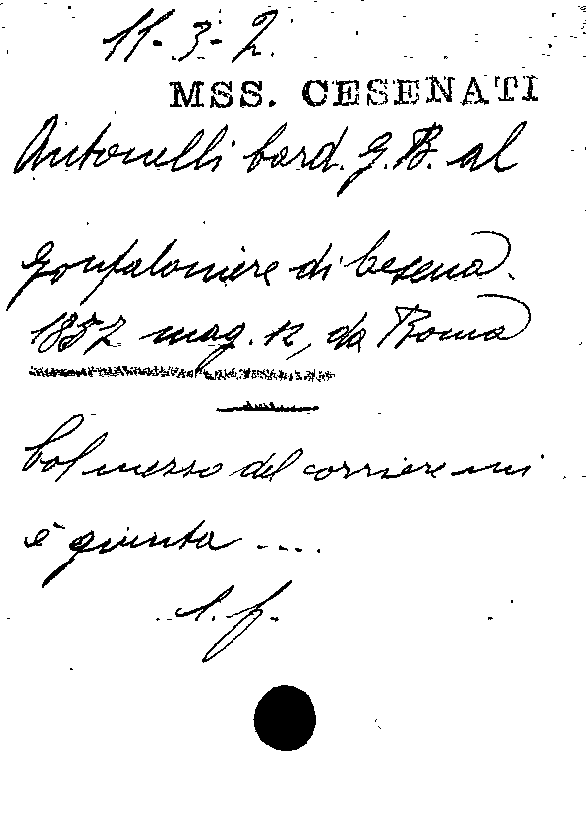 11-3-2.
MSS. CESENATI
Antonelli Card. G. B. al
Gonfaloniere di Cesena.
1852 mag. 12, da Roma
Col mezzo del corriere mi
è giunta ....
l. f.